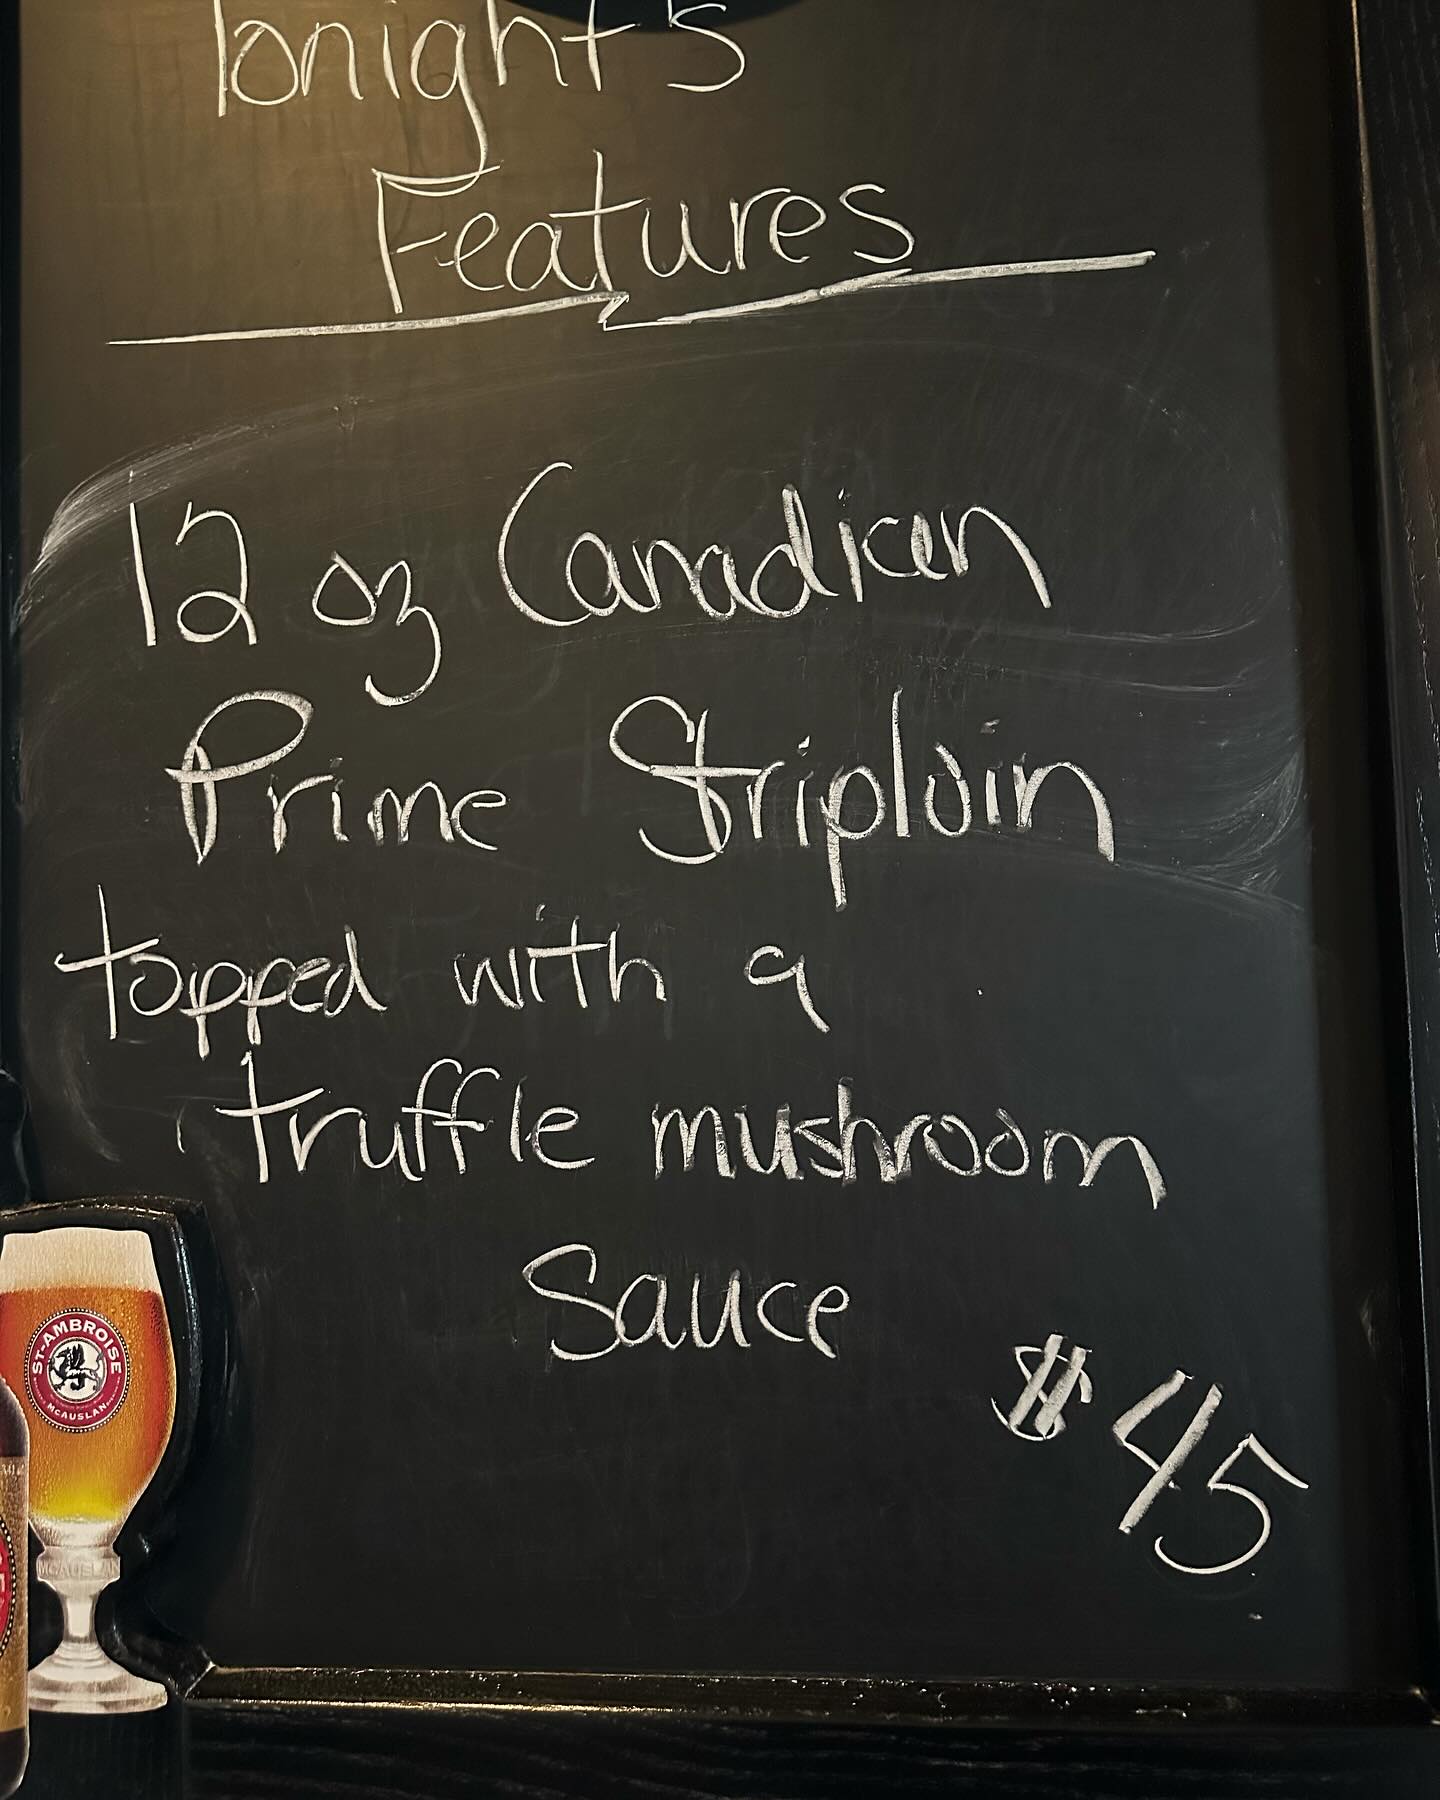 Tonight's
Features
12 oz Canadian
Prime Striploin
topped with a
truffle mushroom
Sauce
$45
ST-AMBROISE
MCAUSLAN
MCAUSLAN